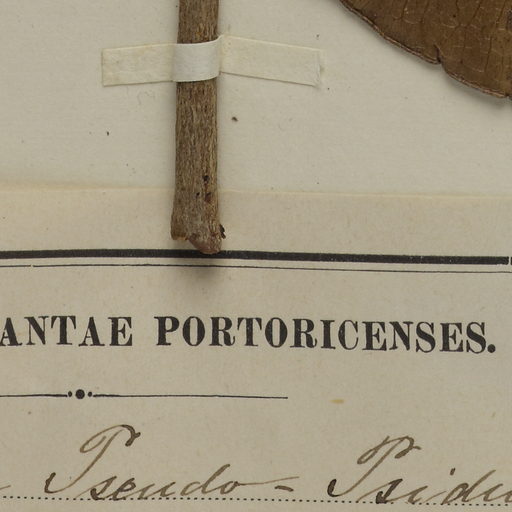 ANTAE PORTORICENSES.
Pseudo-Psidi